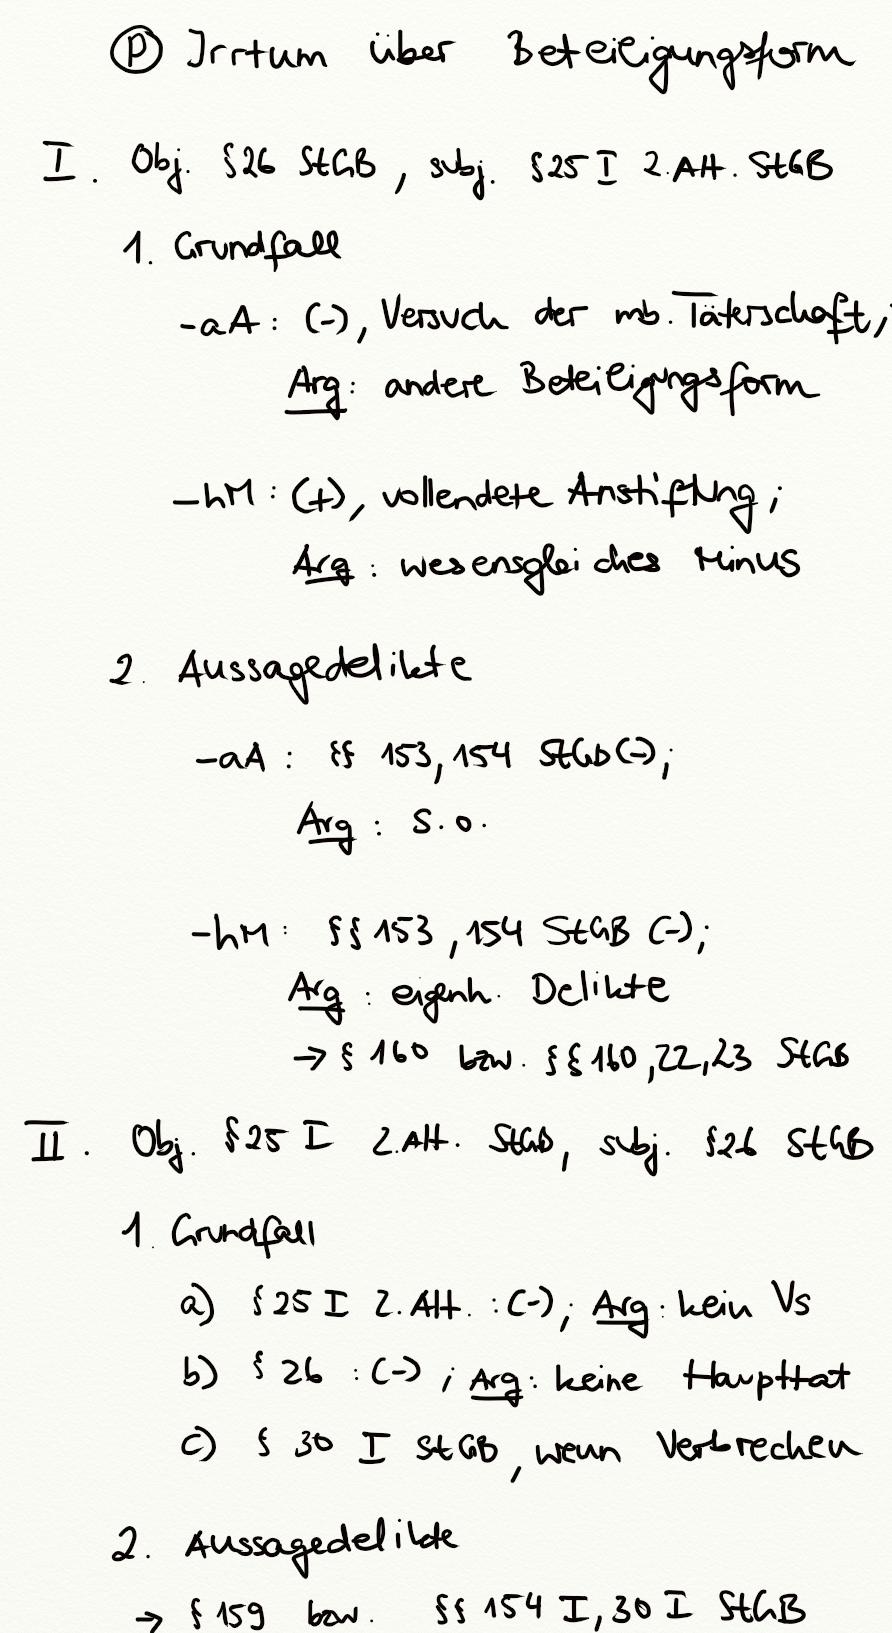 Ⓟ Irrtum über Beteiligungsform
I. Obj. §26 StGB, subj. §25 I 2.Alt. StGB
1. Grundfall
-aA: (-), Versuch der mb. Täterschaft;
Arg: andere Beteiligungsform
-hM: (+), vollendete Anstiftung;
Arg: wesensgleiches Minus
2. Aussagedelikte
-aA: §§ 153, 154 StGB (-);
Arg: s.o.
-hM: §§ 153, 154 StGB (-);
Arg: eigenh. Delikte
→ § 160 bzw. §§ 160, 22, 23 StGB
II. Obj. §25 I 2.Alt. StGB, subj. §26 StGB
1. Grundfall
a) §25 I 2.Alt.: (-); Arg: kein Vs
b) §26: (-); Arg: keine Haupttat
c) § 30 I StGB, wenn Verbrechen
2. Aussagedelikte
→ § 159 bzw. §§ 154 I, 30 I StGB